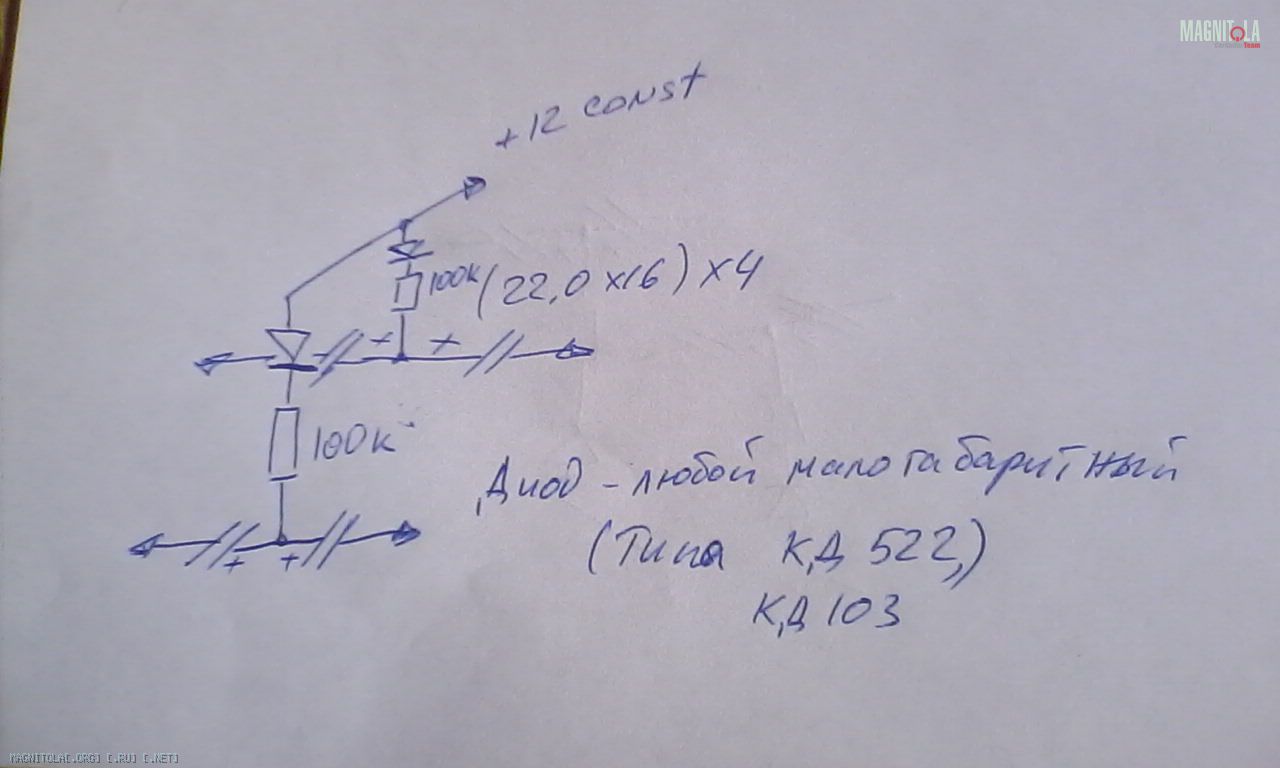 MAGNITOLA
CarAudio Team
+12 const
100к (22,0 х16) х4
+ +
100к
+ +
Диод - любой малогабаритный
(Типа КД 522,)
КД 103
MAGNITOLA[.ORG] [.RU] [.NET]